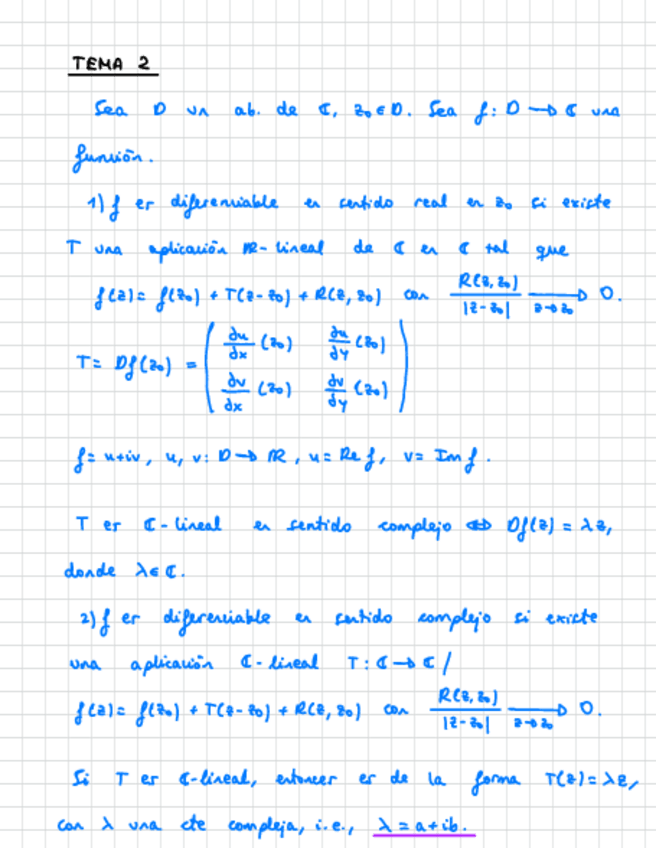 TEMA 2
Sea D un ab. de ℂ, z₀ ∈ D. Sea f: D → ℂ una
función.
1) f es diferenciable en sentido real en z₀ si existe
T una aplicación ℝ-lineal de ℂ en ℂ tal que
f(z) = f(z₀) + T(z-z₀) + R(z, z₀) con R(z, z₀)/|z-z₀| →_{z→z₀} 0.
T = Df(z₀) = ( ∂u/∂x (z₀) ∂u/∂y (z₀)
∂v/∂x (z₀) ∂v/∂y (z₀) )
f = u+iv, u, v: D → ℝ, u = Re f, v = Im f.
T es ℂ-lineal en sentido complejo ⇔ Df(z) = λz,
donde λ ∈ ℂ.
2) f es diferenciable en sentido complejo si existe
una aplicación ℂ-lineal T: ℂ → ℂ /
f(z) = f(z₀) + T(z-z₀) + R(z, z₀) con R(z, z₀)/|z-z₀| →_{z→z₀} 0.
Si T es ℂ-lineal, entonces es de la forma T(z) = λz,
con λ una cte compleja, i.e., λ = a+ib.